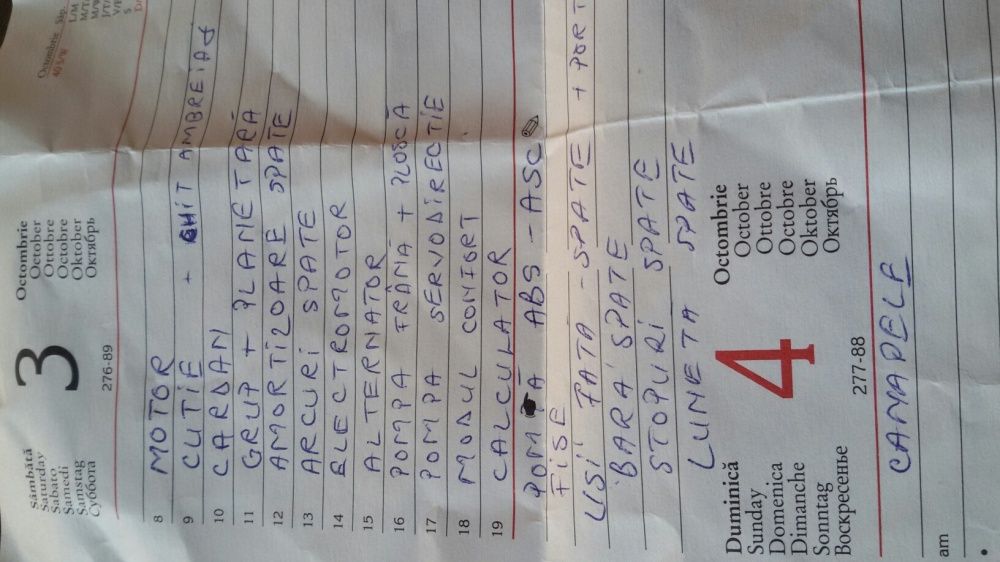 Octombrie Săp.
40 S/W
3
Octombrie
October
Octobre
Ottobre
Oktober
Октябрь
276-89
Sâmbătă
Saturday
Sabato
Samedi
Samstag
Суббота
8 MOTOR
9 CUTIE + CHIT AMBREIAJ
10 CARDAN
11 GRUP + PLANETARĂ
12 AMORTIZOARE SPATE
13 ARCURI SPATE
14 ELECTROMOTOR
15 ALTERNATOR
16 POMPA FRÂNĂ + PLOSCĂ
17 POMPA SERVODIRECTIE
18 MODUL CONFORT
19 CALCULATOR
POMPĂ ABS - ASC
FISE
USI FATA - SPATE + PORT
BARĂ SPATE
STOPURI SPATE
LUNETA SPATE
Duminică
Sunday
Domenica
Dimanche
Sonntag
Воскресенье
4
Octombrie
October
Ottobre
Octobre
Oktober
Октябрь
277-88
CANAPELE
am